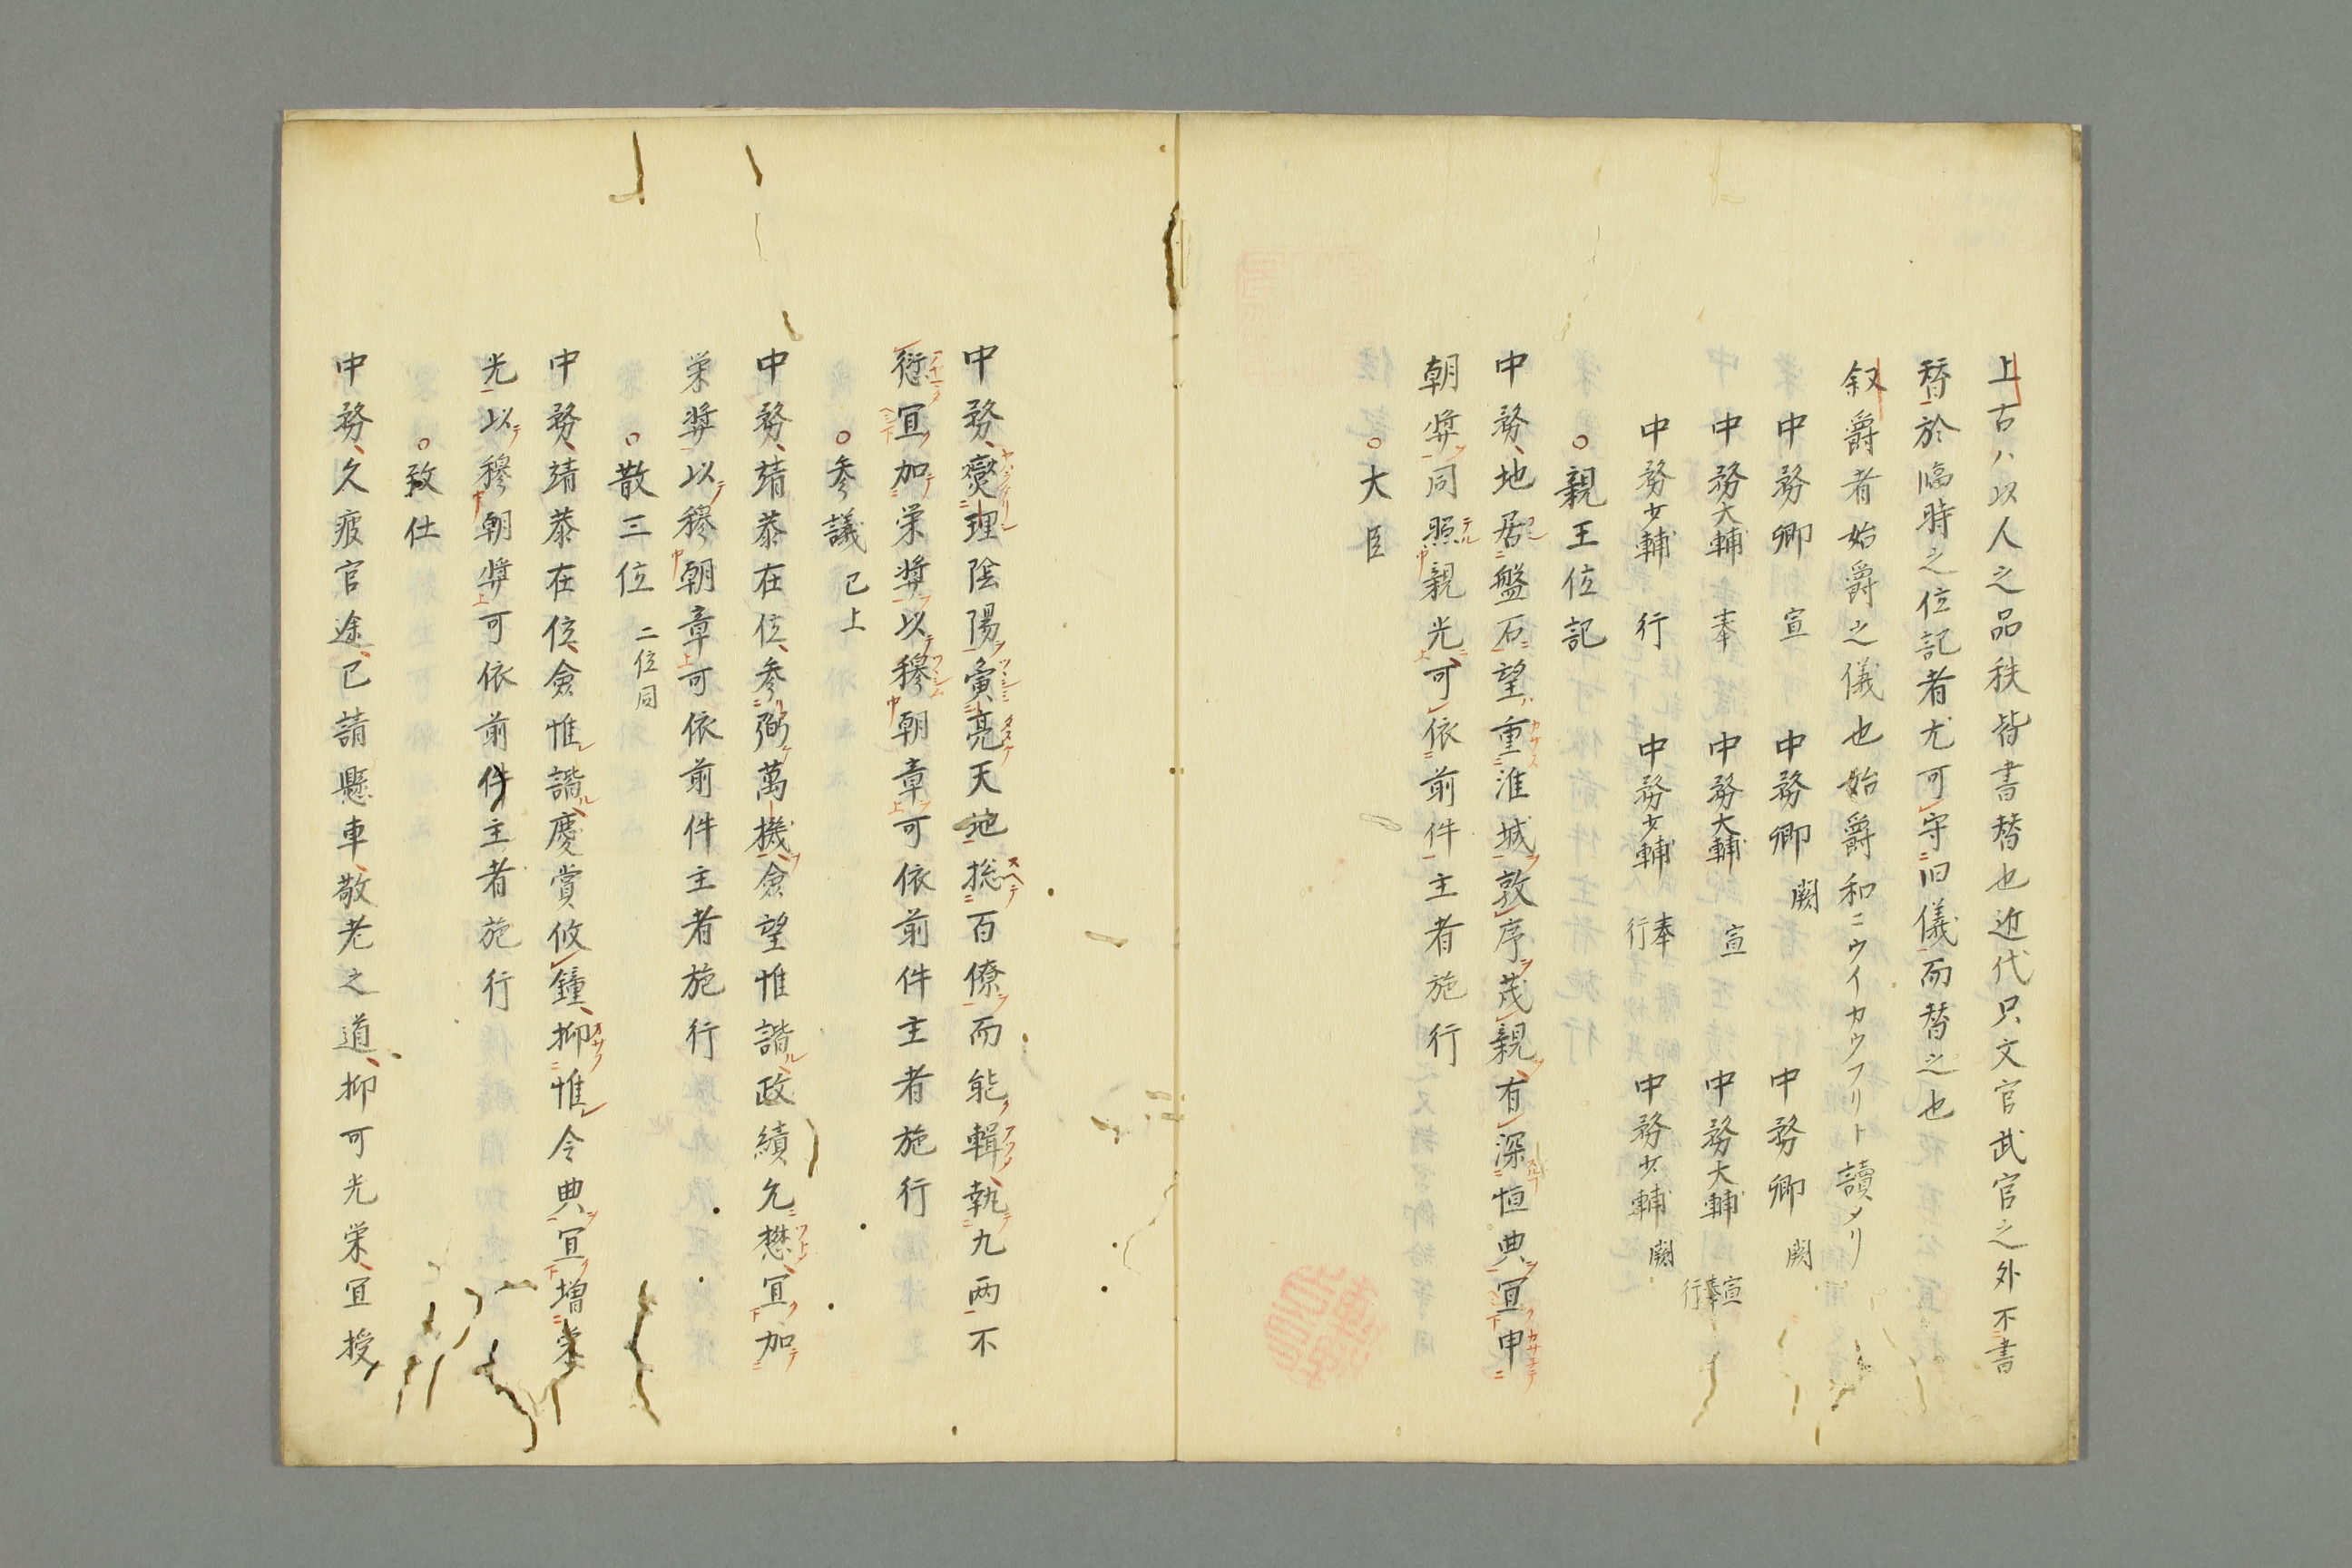 上古ハ以人之品秩皆書替也近代只文官武官之外不書
替於臨時之位記者尤可守旧儀而替之也
叙爵者始爵之儀也始爵和ニウイカウフリト讀メリ
中務卿 宣 中務卿 闕 中務卿 闕
中務大輔 奉 中務大輔 宣 中務大輔 宣奉行
中務少輔 行 中務少輔 奉行 中務少輔 闕
○親王位記
中務地居盤石望重淮城敦序茂親有深恒典宜申
朝奨同照親光可依前件主者施行
○大臣
中務燮理陰陽寅亮天地捴百僚而能輯執九両不
愆宜加栄奨以穆朝章可依前件主者施行
○参議 已上
中務靖恭在位参弼萬機僉望惟諧政績允懋宜加
栄奨以穆朝章可依前件主者施行
○散三位 二位同
中務靖恭在位僉惟諧慶賞攸鐘抑惟令典宜増栄
光以穆朝奨可依前件主者施行
○致仕
中務久疲官途已請懸車敬老之道抑可光栄宜授